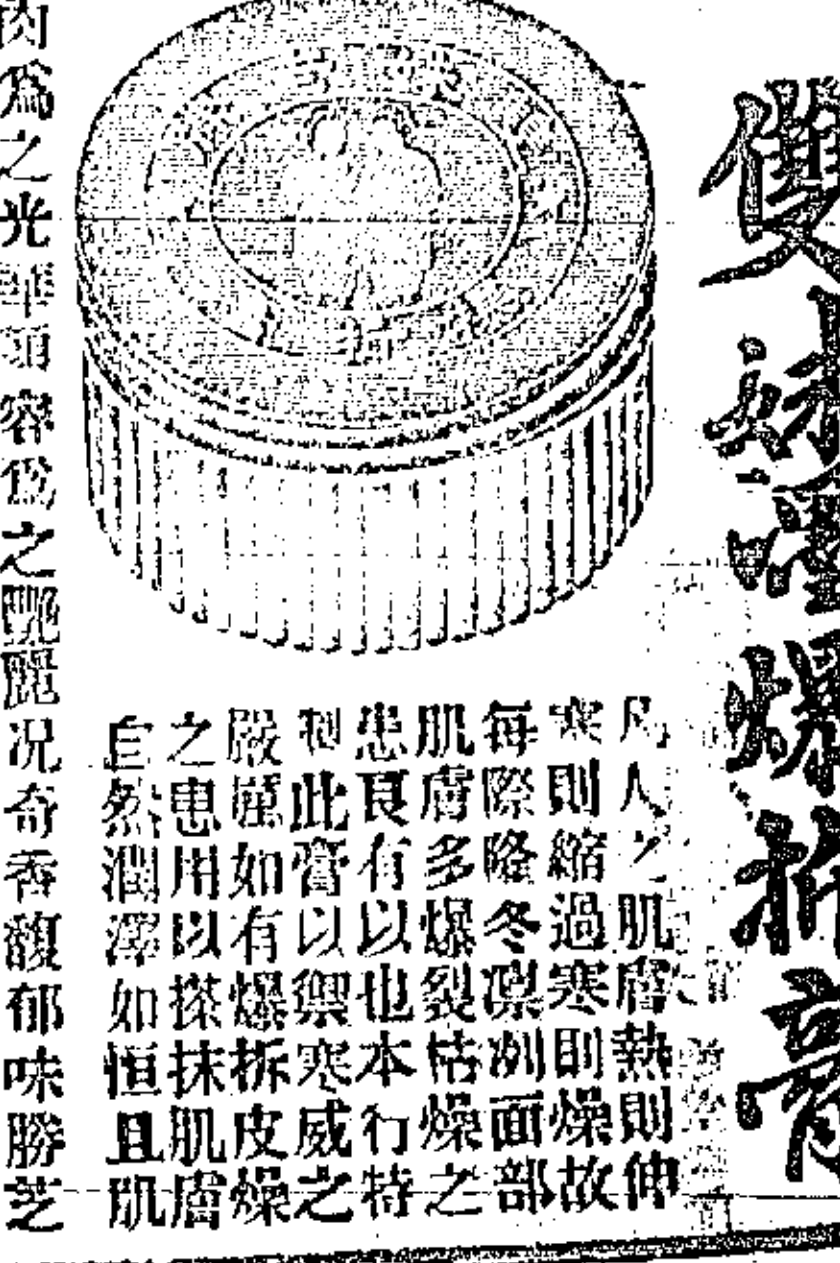 雙妹嘜爆拆膏
凡人之肌膚熱則伸
寒則縮過寒則燥故
每際隆冬凛冽面部
肌膚多爆裂枯燥之
患良有以也本行特
製此膏以禦寒威之
嚴厲如有爆拆皮燥
之患用以搽抹肌膚
自然潤澤如恒且肌
肉爲之光華頭容爲之艷麗况奇香馥郁味勝芝